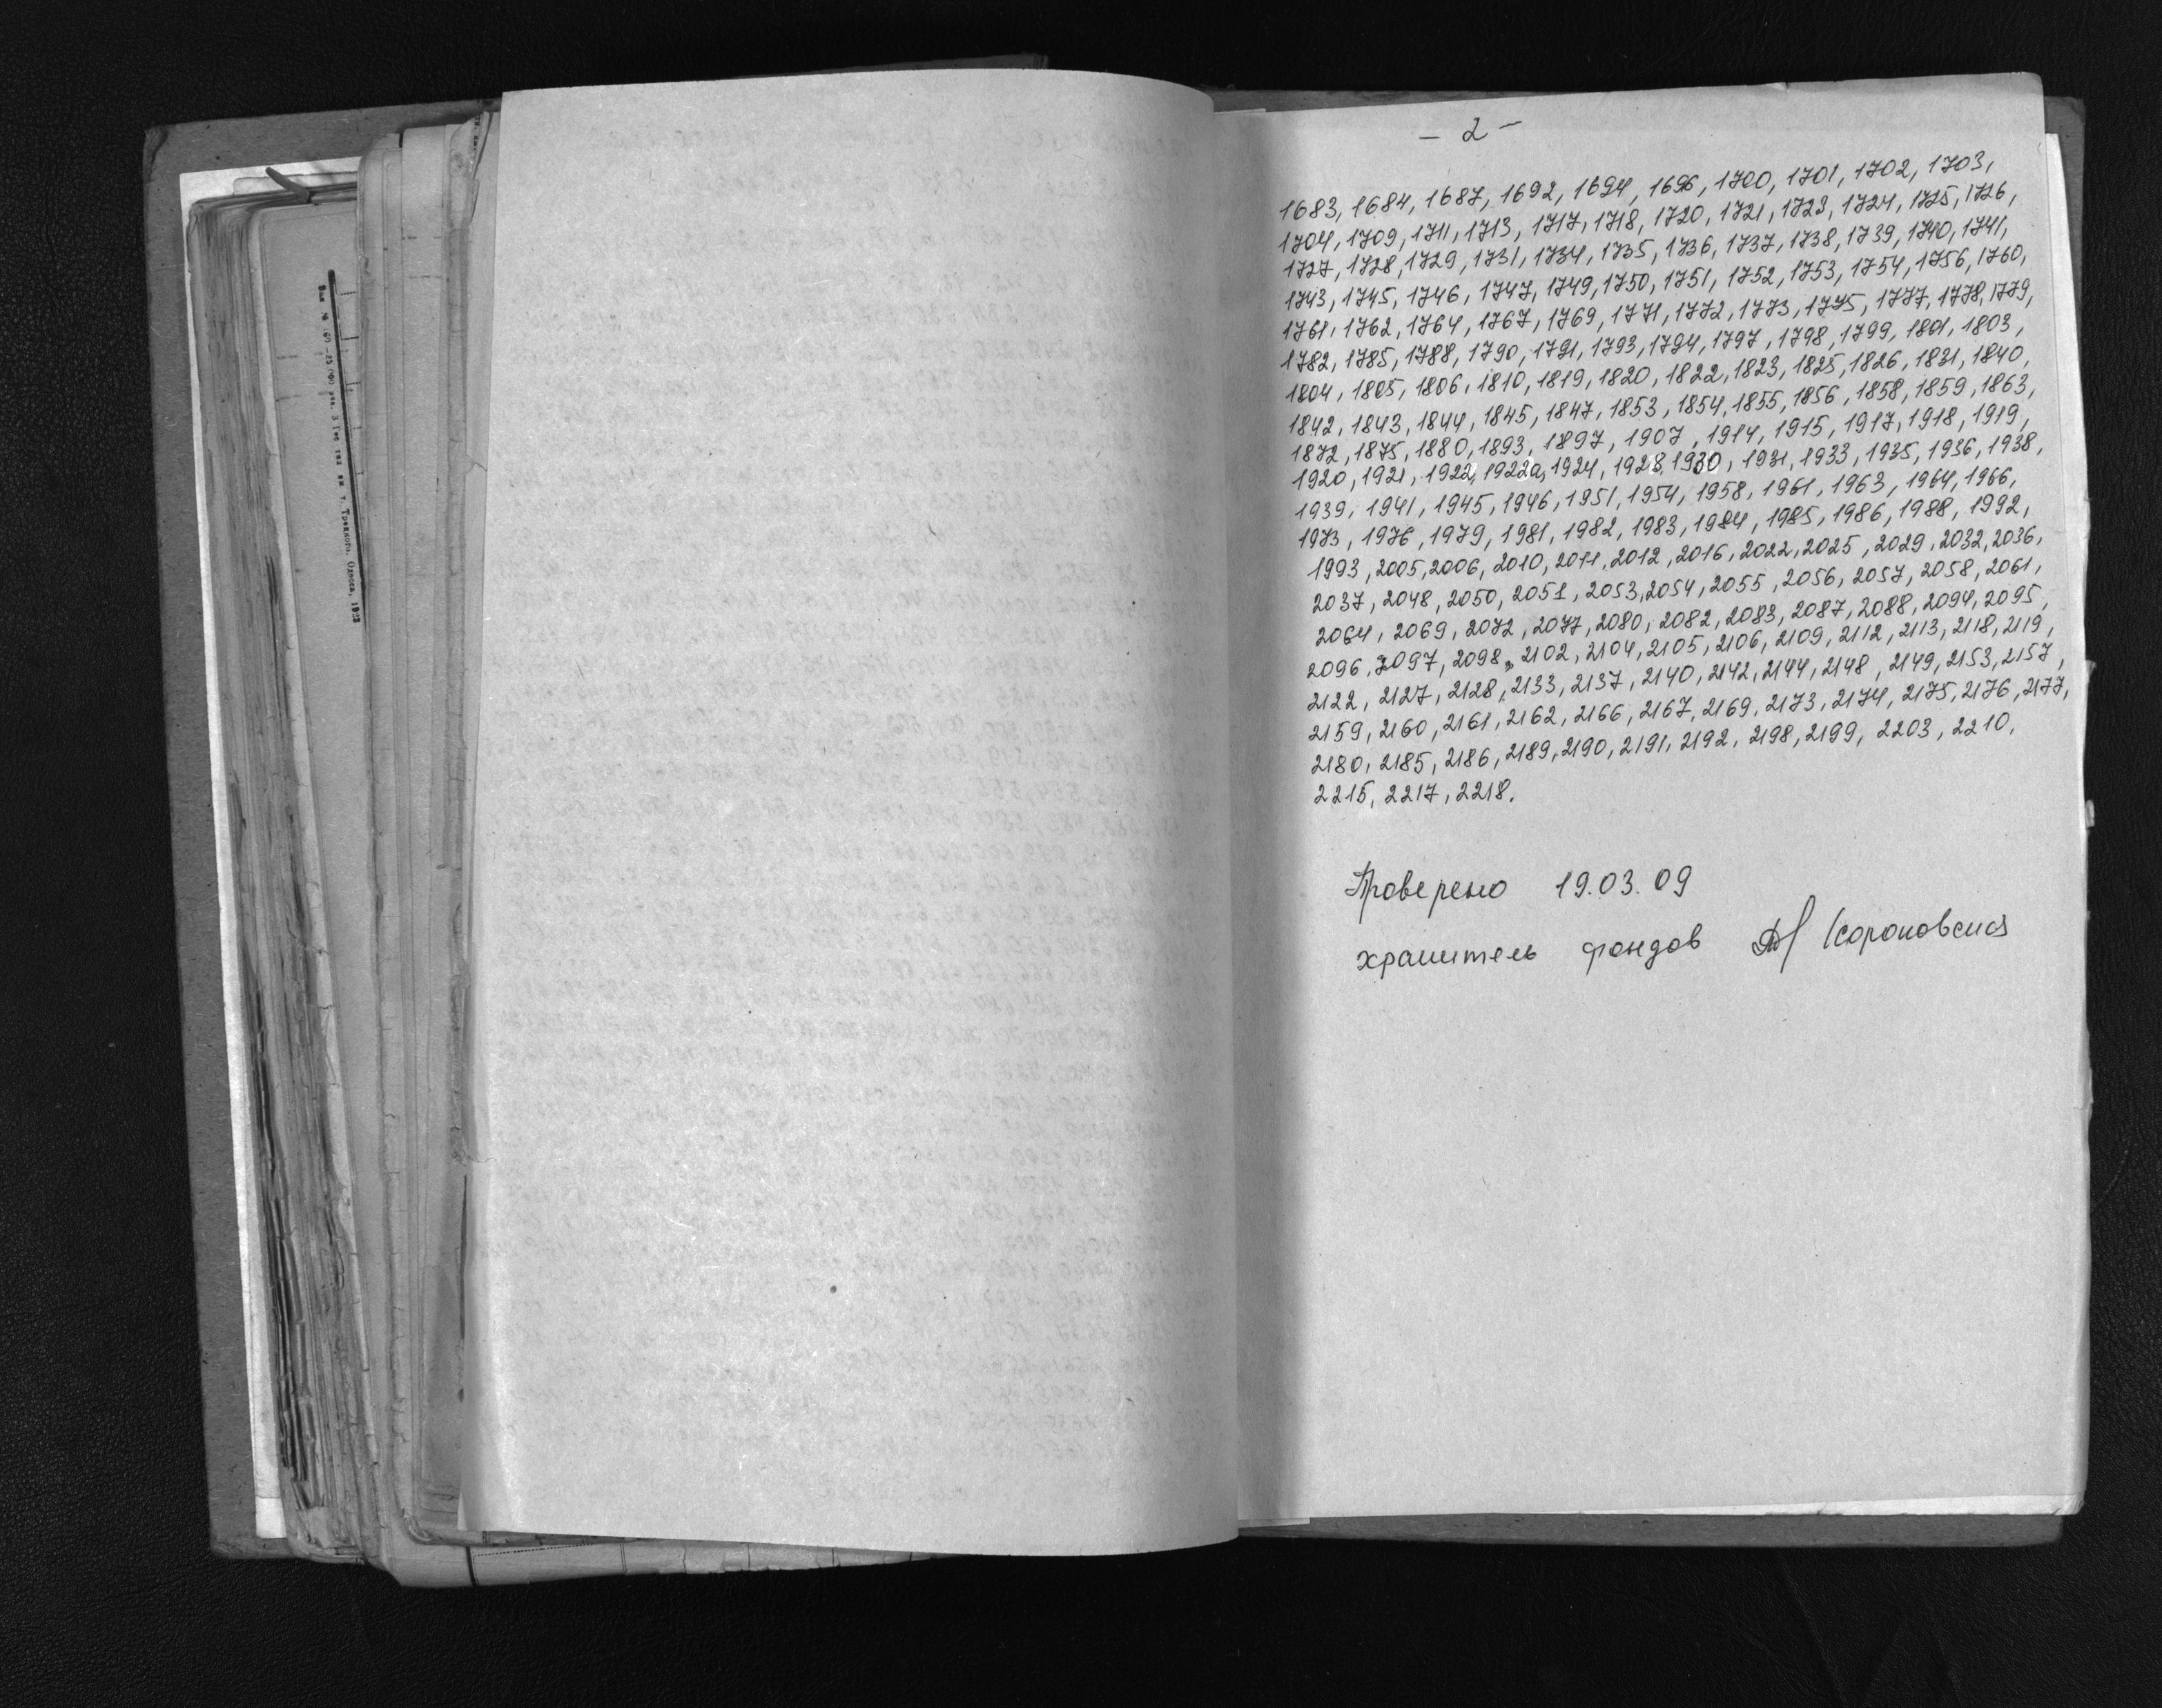 - 2 -
1683, 1684, 1687, 1692, 1694, 1696, 1700, 1701, 1702, 1703,
1704, 1709, 1711, 1713, 1717, 1718, 1720, 1721, 1723, 1724, 1725, 1726,
1727, 1728, 1729, 1731, 1734, 1735, 1736, 1737, 1738, 1739, 1740, 1741,
1743, 1745, 1746, 1747, 1749, 1750, 1751, 1752, 1753, 1754, 1756, 1760,
1761, 1762, 1764, 1767, 1769, 1771, 1772, 1773, 1775, 1777, 1778, 1779,
1782, 1785, 1788, 1790, 1791, 1793, 1794, 1797, 1798, 1799, 1801, 1803,
1804, 1805, 1806, 1810, 1819, 1820, 1822, 1823, 1825, 1826, 1831, 1840,
1842, 1843, 1844, 1845, 1847, 1853, 1854, 1855, 1856, 1858, 1859, 1863,
1872, 1875, 1880, 1893, 1897, 1907, 1914, 1915, 1917, 1918, 1919,
1920, 1921, 1922, 1922а, 1924, 1928, 1930, 1931, 1933, 1935, 1936, 1938,
1939, 1941, 1945, 1946, 1951, 1954, 1958, 1961, 1963, 1964, 1966,
1973, 1976, 1979, 1981, 1982, 1983, 1984, 1985, 1986, 1988, 1992,
1993, 2005, 2006, 2010, 2011, 2012, 2016, 2022, 2025, 2029, 2032, 2036,
2037, 2048, 2050, 2051, 2053, 2054, 2055, 2056, 2057, 2058, 2061,
2064, 2069, 2072, 2077, 2080, 2082, 2083, 2087, 2088, 2094, 2095,
2096, 2097, 2098, 2102, 2104, 2105, 2106, 2109, 2112, 2113, 2118, 2119,
2122, 2127, 2128, 2133, 2137, 2140, 2142, 2144, 2148, 2149, 2153, 2157,
2159, 2160, 2161, 2162, 2166, 2167, 2169, 2173, 2174, 2175, 2176, 2177,
2180, 2185, 2186, 2189, 2190, 2191, 2192, 2198, 2199, 2203, 2210,
2215, 2217, 2218.
Проверено 19.03.09
хранитель фондов